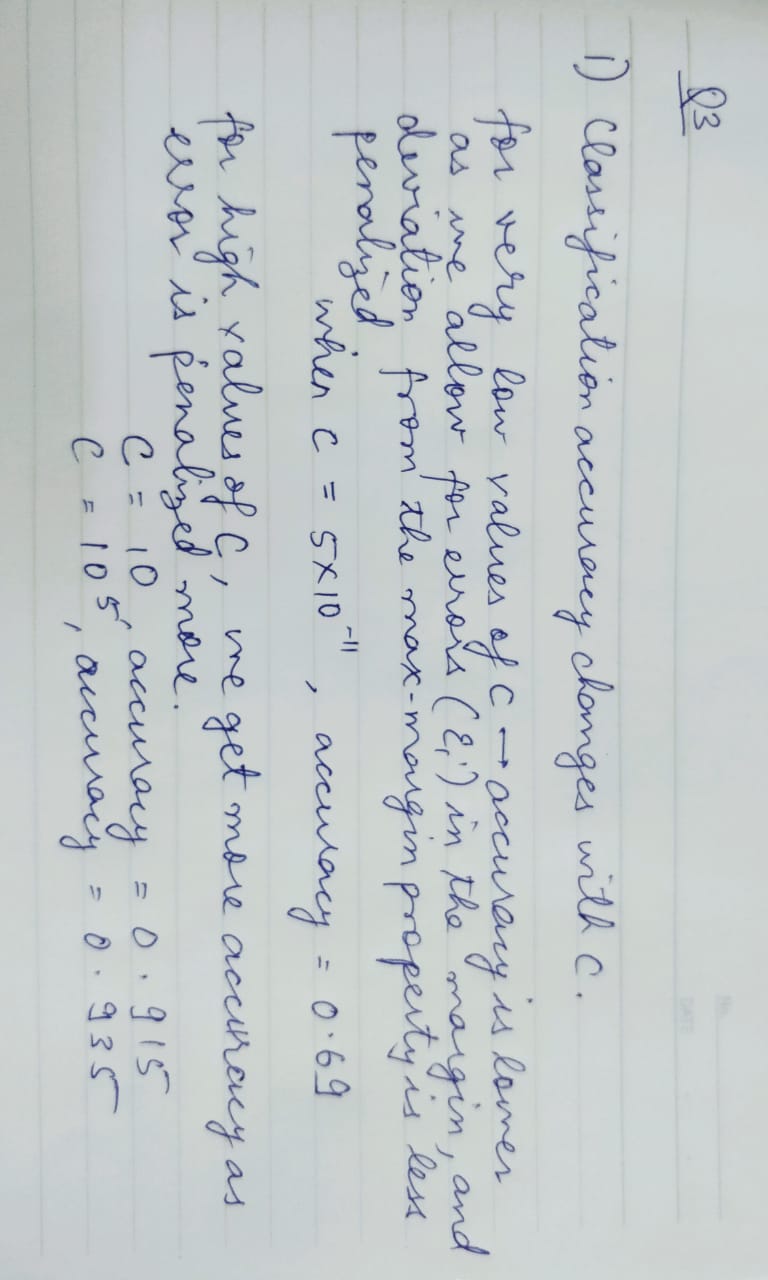 Q3
1) Classification accuracy changes with C.
for very low values of C → accuracy is lower
as we allow for errors (ξi) in the margin, and
deviation from the max-margin property is less
penalized
when C = 5×10⁻¹¹, accuracy = 0.69
for high values of C, we get more accuracy as
error is penalized more.
C = 10, accuracy = 0.915
C = 10⁵, accuracy = 0.935
No.
DATE